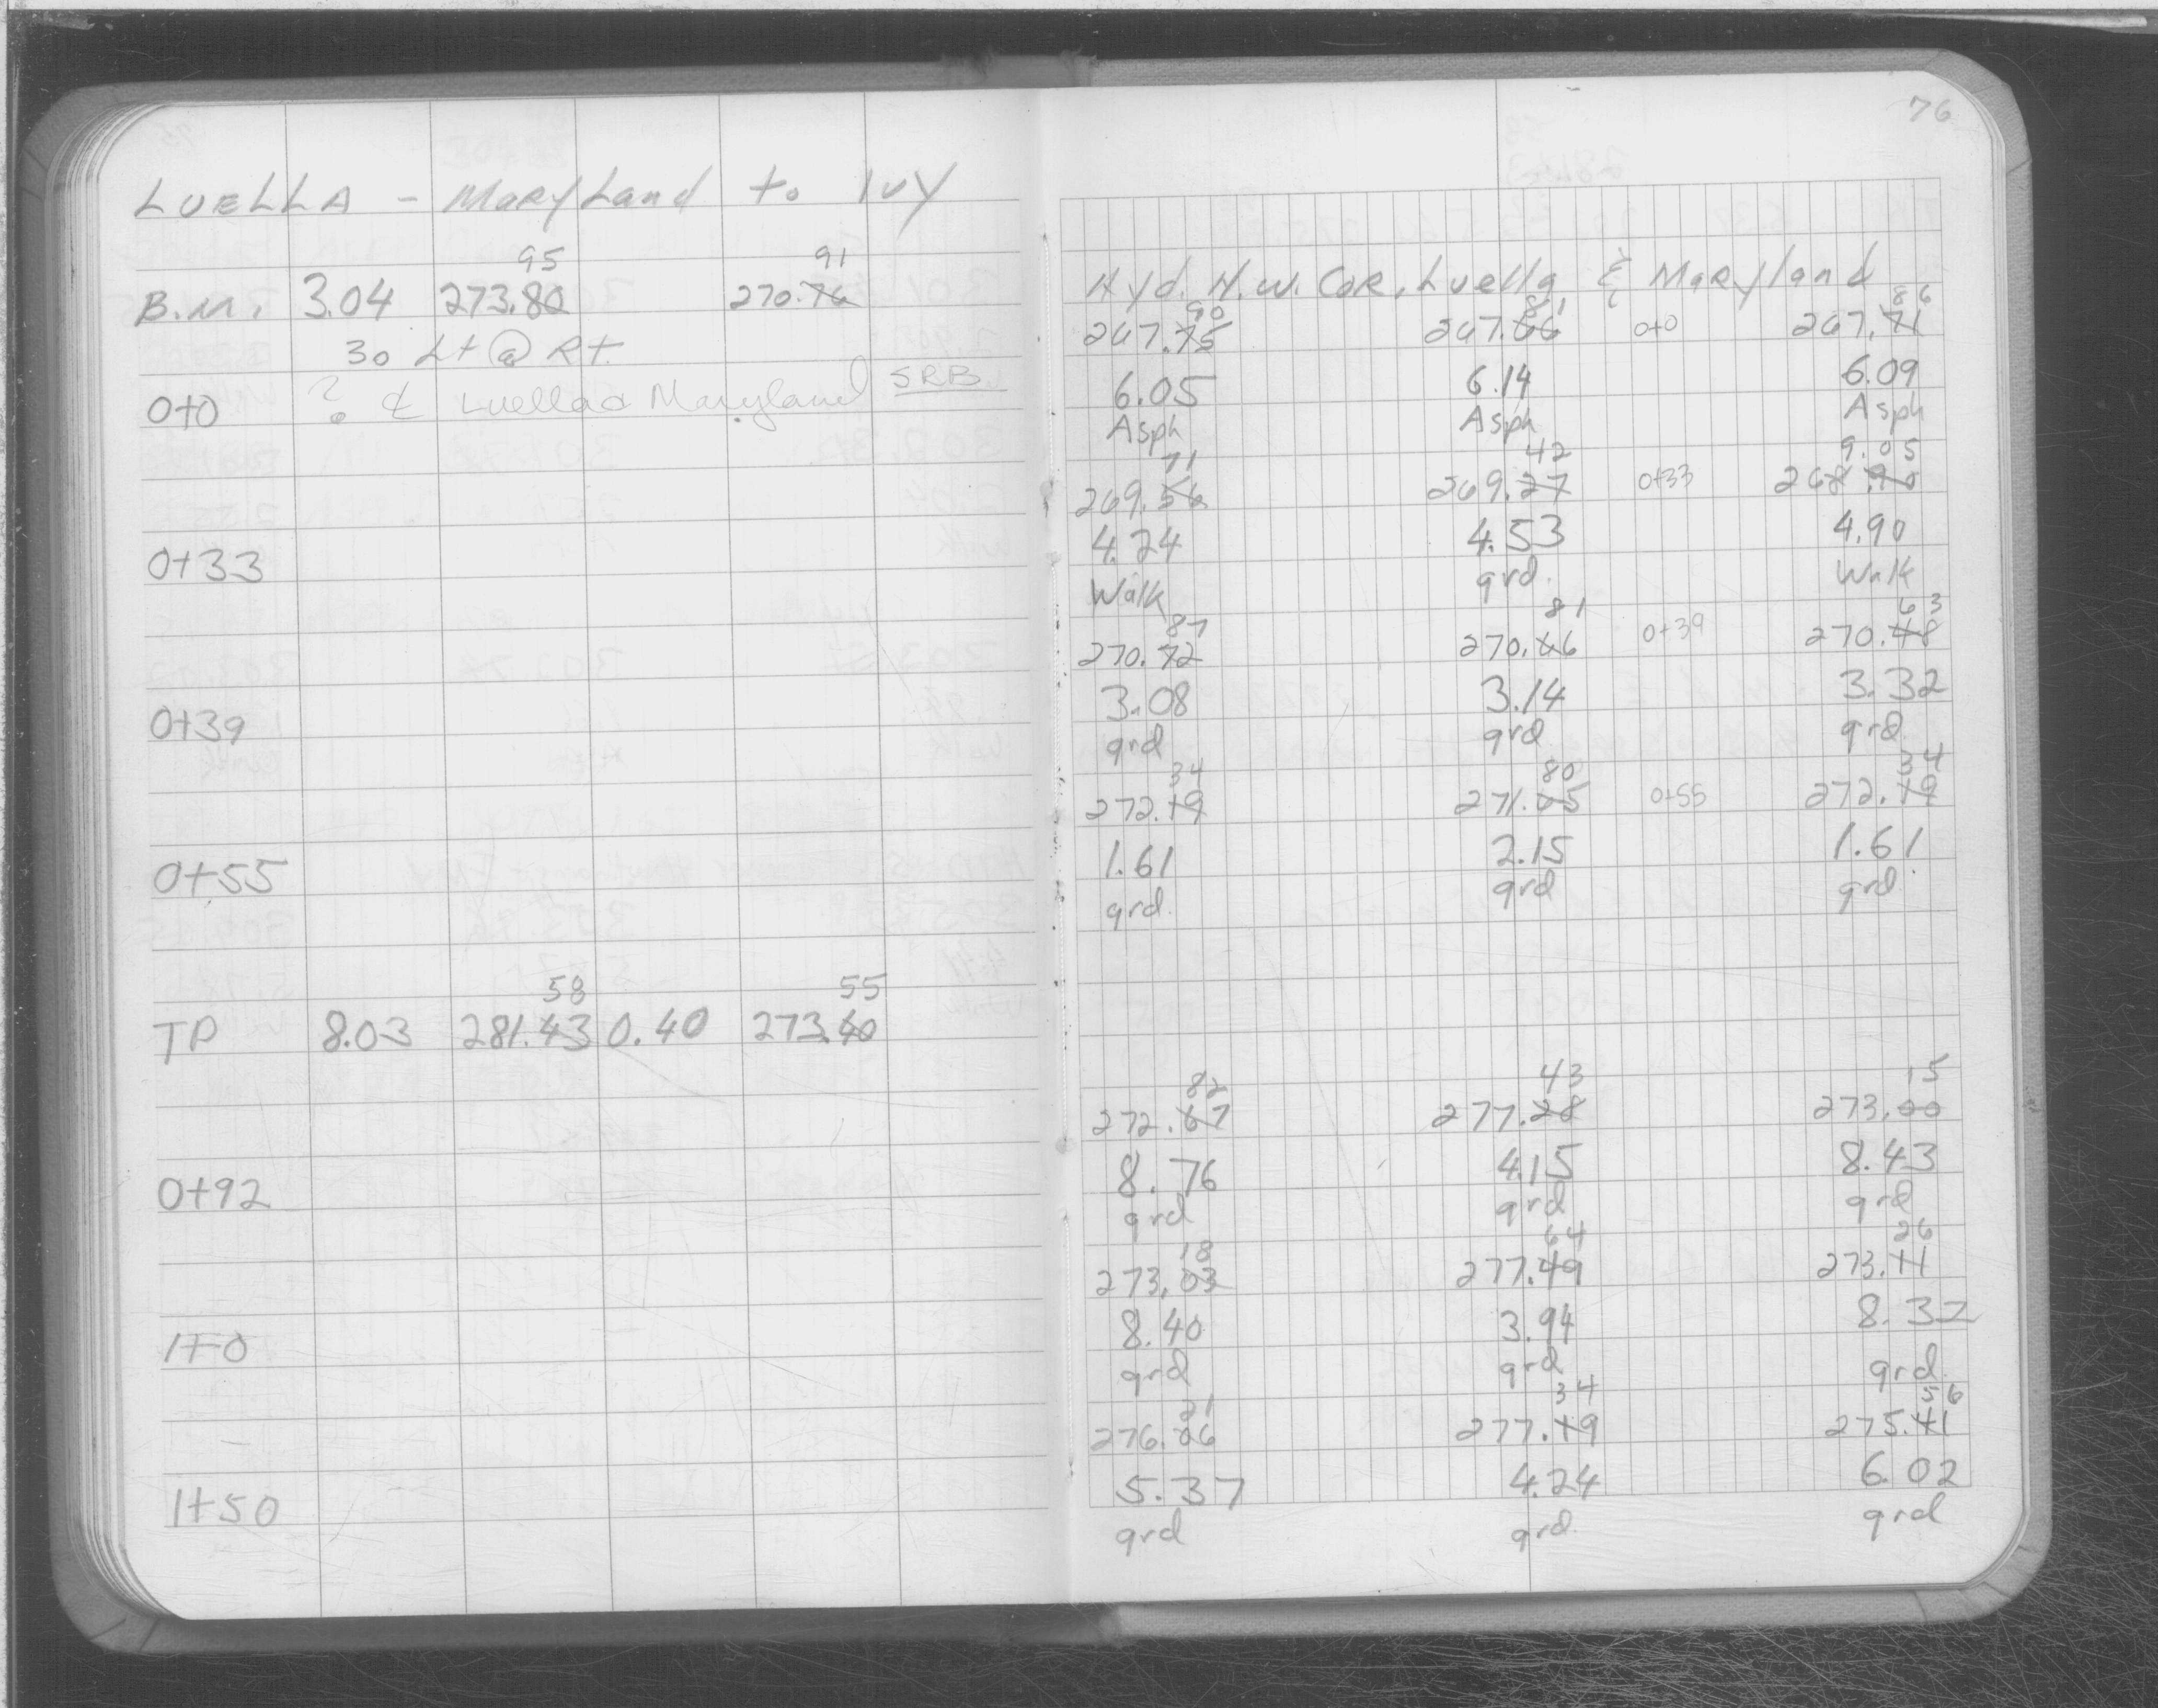 76
LUELLA - MARYLand to IVY
95 91
B.M. 3.04 273.80 270.76
30 Lt @ Rt.
0+0 ? ℄ Luella & Maryland SRB
0+33
0+39
0+55
58 55
TP 8.03 281.43 0.40 273.40
0+92
1+0
1+50
Hyd. N.W. COR. Luella & Maryland
90 81 86
267.75 267.66 0+0 267.71
6.05 6.14 6.09
Asph Asph Asph
71 42 9.05
269.56 269.27 0+33 268.90
4.24 4.53 4.90
Walk grd. Walk
87 81 63
270.72 270.66 0+39 270.48
3.08 3.14 3.32
grd grd grd
34 80 34
272.19 271.65 0+55 272.19
1.61 2.15 1.61
grd. grd grd
82 43 15
272.67 277.28 273.00
8.76 4.15 8.43
grd grd grd
18 64 26
273.03 277.49 273.11
8.40 3.94 8.32
grd grd grd.
21 34 56
276.06 277.19 275.41
5.37 4.24 6.02
grd grd. grd